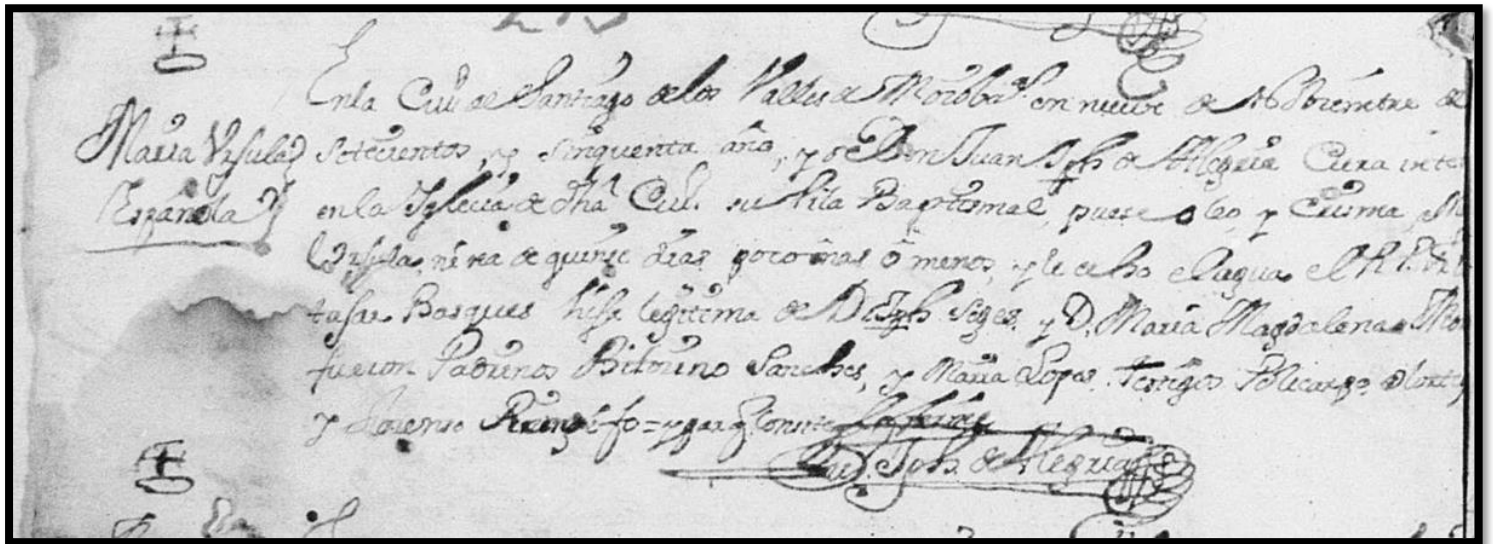 En la Ciud de Santiago de los Valles de Moiobaª en nueve de Nobiembre de
Maria Vrsula setecientos, y sinquenta años, yo Don Juan Jph de Alegria Cura inte
Española en la Iglecia de dha Ciud. su Pila Baptismal, puse oleo, y Crisma, M
Vrsula, niña de quinse dias poco mas o menos, y le echo el agua el R. P.
tasar Basques hija legitima de D. Jph Seges, y D. Maria Magdalena
fueron Padrinos Bitorino Sanches, y Maria Lopes. Testigos Policarpo
y Lorenso Rengifo = y para q conste lo firme
Juº Jph. de Alegria